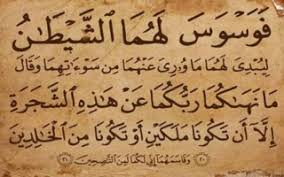 فَوَسْوَسَ لَهُمَا ٱلشَّيْطَٰنُ
لِيُبْدِىَ لَهُمَا مَا وُۥرِىَ عَنْهُمَا مِن سَوْءَٰتِهِمَا وَقَالَ
مَا نَهَىٰكُمَا رَبُّكُمَا عَنْ هَٰذِهِ ٱلشَّجَرَةِ
إِلَّآ أَن تَكُونَا مَلَكَيْنِ أَوْ تَكُونَا مِنَ ٱلْخَٰلِدِينَ
٢٠ وَقَاسَمَهُمَآ إِنِّى لَكُمَا لَمِنَ ٱلنَّٰصِحِينَ ٢١